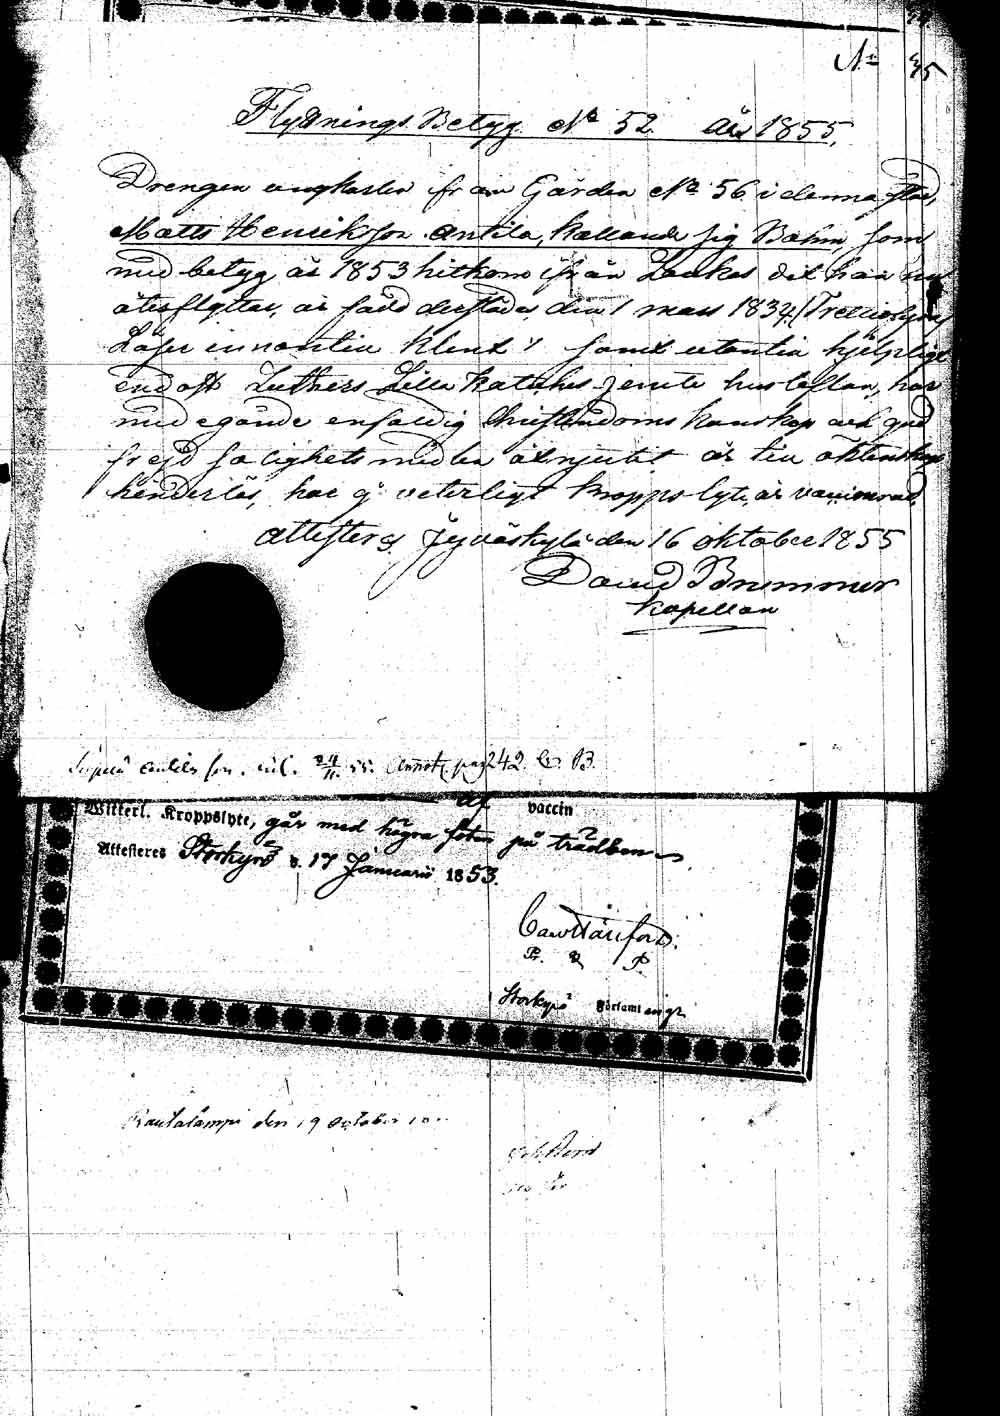 No 35
Flyttnings Betyg No 52 år 1855.
Drengen ungkarlen från Gården No 56 i denna stad,
Matts Henriksson Antila, kallande sig Bohm, som
med betyg år 1853 hitkom ifrån Laukas dit han nu
återflyttar, är född derstädes den 1 mars 1834 (Trettiofyra)
Läser innantin klent, samt utantin hjelpligt
endast Luthers Lilla Kateches jemte hustaflan, har
med egande enfaldig Christendoms kunskap och god
frejd salighetsmedlen åtnjutit är till äktenskap
hinderlös, har ej veterligt kroppslyte, är vaccinerad,
attesteras Jyväskylä den 16 oktober 1855
David Brummer
Kapellan
55. Annot. pag 242. B.
af
Witterl. Kroppslyte, går med högra foten på trädben vaccin
Attesteres Storkyrö d. 17 Januarii 1853.
P.
Storkyrö Församling
Rautalampi den 19 October